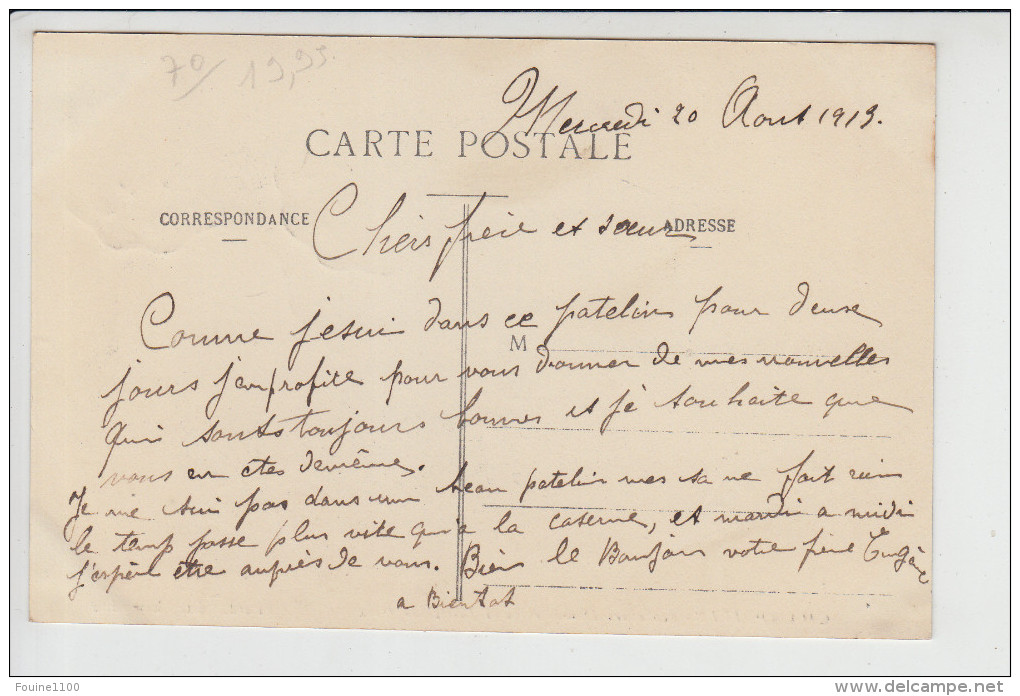 70/ 19,95
Mercredi 20 Aout 1913.
CARTE POSTALE
CORRESPONDANCE
Chers frère et sœur
ADRESSE
Comme je sui dans ce patelin pour deuse
M
jours j'en profite pour vous donner de mes nouvelles
Qui sont toujours bonnes et je souhaite que
vous en etes de même.
Je me sui pas dans un beau patelin mes sa ne fait rien
le temp passe plus vite qu'a la caserne, et mardi a midi
j'espère etre auprès de vous. Bien le Bonjour votre frère Eugène
a Bientot
Fouine1100
www.delcampe.net